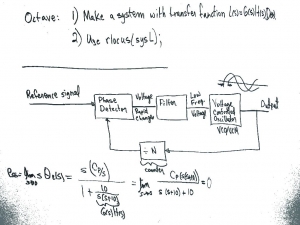 Octave: 1) Make a system with transfer function L(s)=G(s)H(s)
2) Use rlocus(sysL);
Reference signal
Phase Detector
Voltage
Rapid Changes
Filter
Low Freq.
Voltage
Voltage Controlled Oscillator
VCO/VCM
Output
÷ N
counter
ess = lim s Θe(s) = s(Cp/s) / 1 + 10/s(s+10) = lim Cp(s(s+10)) / s(s+10)+10 = 0
s→0
s→0
G(s)H(s)